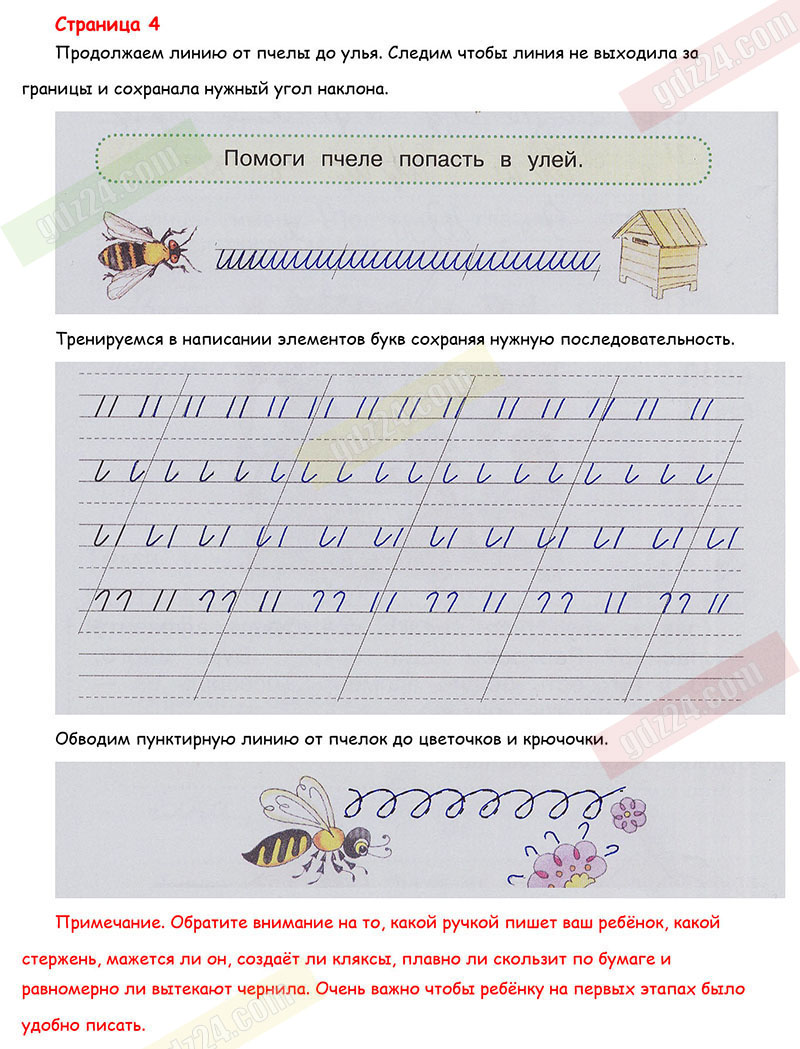 Страница 4
Продолжаем линию от пчелы до улья. Следим чтобы линия не выходила за
границы и сохранала нужный угол наклона.
gdz24.com
gdz24.com
Помоги пчеле попасть в улей.
Тренируемся в написании элементов букв сохраняя нужную последовательность.
gdz24.com
gdz24.com
Обводим пунктирную линию от пчелок до цветочков и крючочки.
Примечание. Обратите внимание на то, какой ручкой пишет ваш ребёнок, какой
стержень, мажется ли он, создаёт ли кляксы, плавно ли скользит по бумаге и
равномерно ли вытекают чернила. Очень важно чтобы ребёнку на первых этапах было
удобно писать.
gdz24.com